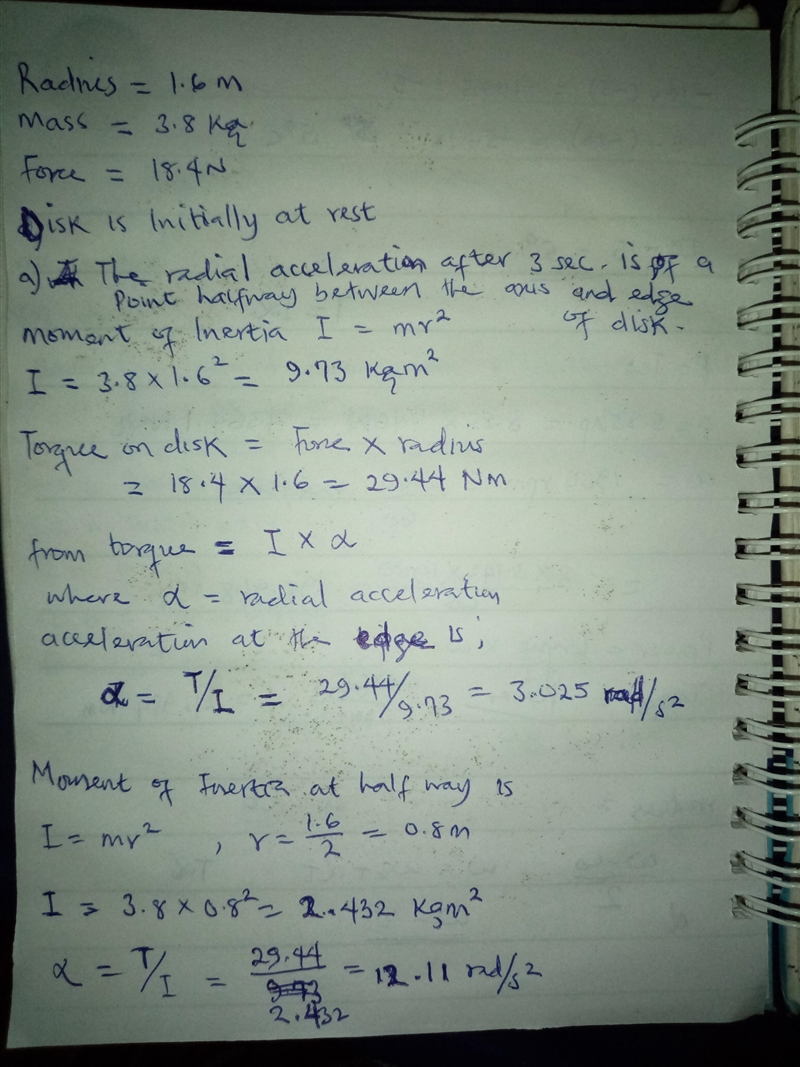 Radius = 1.6 m
Mass = 3.8 Kg
Force = 18.4N
Disk is Initially at rest
a) The radial acceleration after 3 sec. is of a
Point halfway between the axis and edge
of disk.
moment of Inertia I = mr²
I = 3.8 × 1.6² = 9.73 Kgm²
Torque on disk = Force × radius
= 18.4 × 1.6 = 29.44 Nm
from torque = I × α
where α = radial acceleration
acceleration at the edge is;
α = T/I = 29.44/9.73 = 3.025 rad/s²
Moment of Inertia at half way is
I = mr² , r = 1.6/2 = 0.8m
I = 3.8 × 0.8² = 2.432 Kgm²
α = T/I = 29.44/2.432 = 12.11 rad/s²